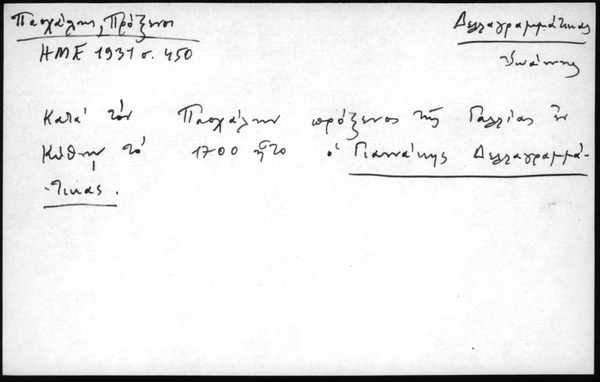 Πασχάλης, Πρόξενοι
Δελλαγραμμάτικας
ΗΜΕ 1931 σ. 450
Ἰωάννης
Κατά τόν Πασχάλην πρόξενος τῆς Γαλλίας ἐν
Κύθνῳ τό 1700 ἦτο ὁ Γιαννάκης Δελλαγραμμά-
τικας.